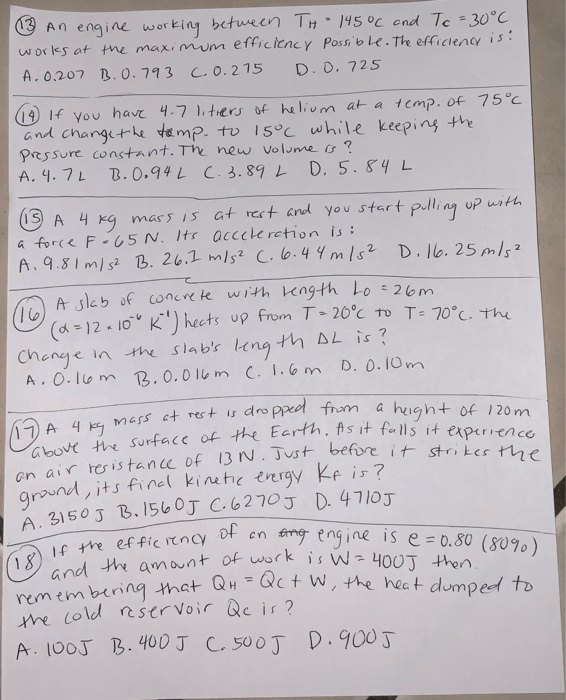 (13) An engine working between TH = 145°C and Tc = 30°C
works at the maximum efficiency possible. The efficiency is:
A. 0.207 B. 0.793 C. 0.275 D. 0.725
(14) If you have 4.7 litiers of helium at a temp. of 75°C
and change the temp. to 15°C while keeping the
pressure constant. The new volume is?
A. 4.7L B. 0.94L C. 3.89 L D. 5.84 L
(15) A 4 kg mass is at rest and you start pulling up with
a force F = 65 N. Its acceleration is:
A. 9.81 m/s² B. 26.1 m/s² C. 6.44 m/s² D. 16.25 m/s²
(16) A slab of concrete with length Lo = 26m
(α = 12 × 10⁻⁶ K⁻¹) heats up from T = 20°C to T = 70°C. The
Change in the slab's length ΔL is?
A. 0.16m B. 0.016m C. 1.6m D. 0.10m
(17) A 4 kg mass at rest is dropped from a height of 120m
above the surface of the Earth. As it falls it experience
an air resistance of 13 N. Just before it strikes the
ground, its final kinetic energy Kf is?
A. 3150 J B. 1560 J C. 6270 J D. 4710 J
(18) If the efficiency of an ang engine is e = 0.80 (80%)
and the amount of work is W = 400J then.
remembering that QH = Qc + W, the heat dumped to
the cold reservoir Qc is?
A. 100J B. 400 J C. 500J D. 900J